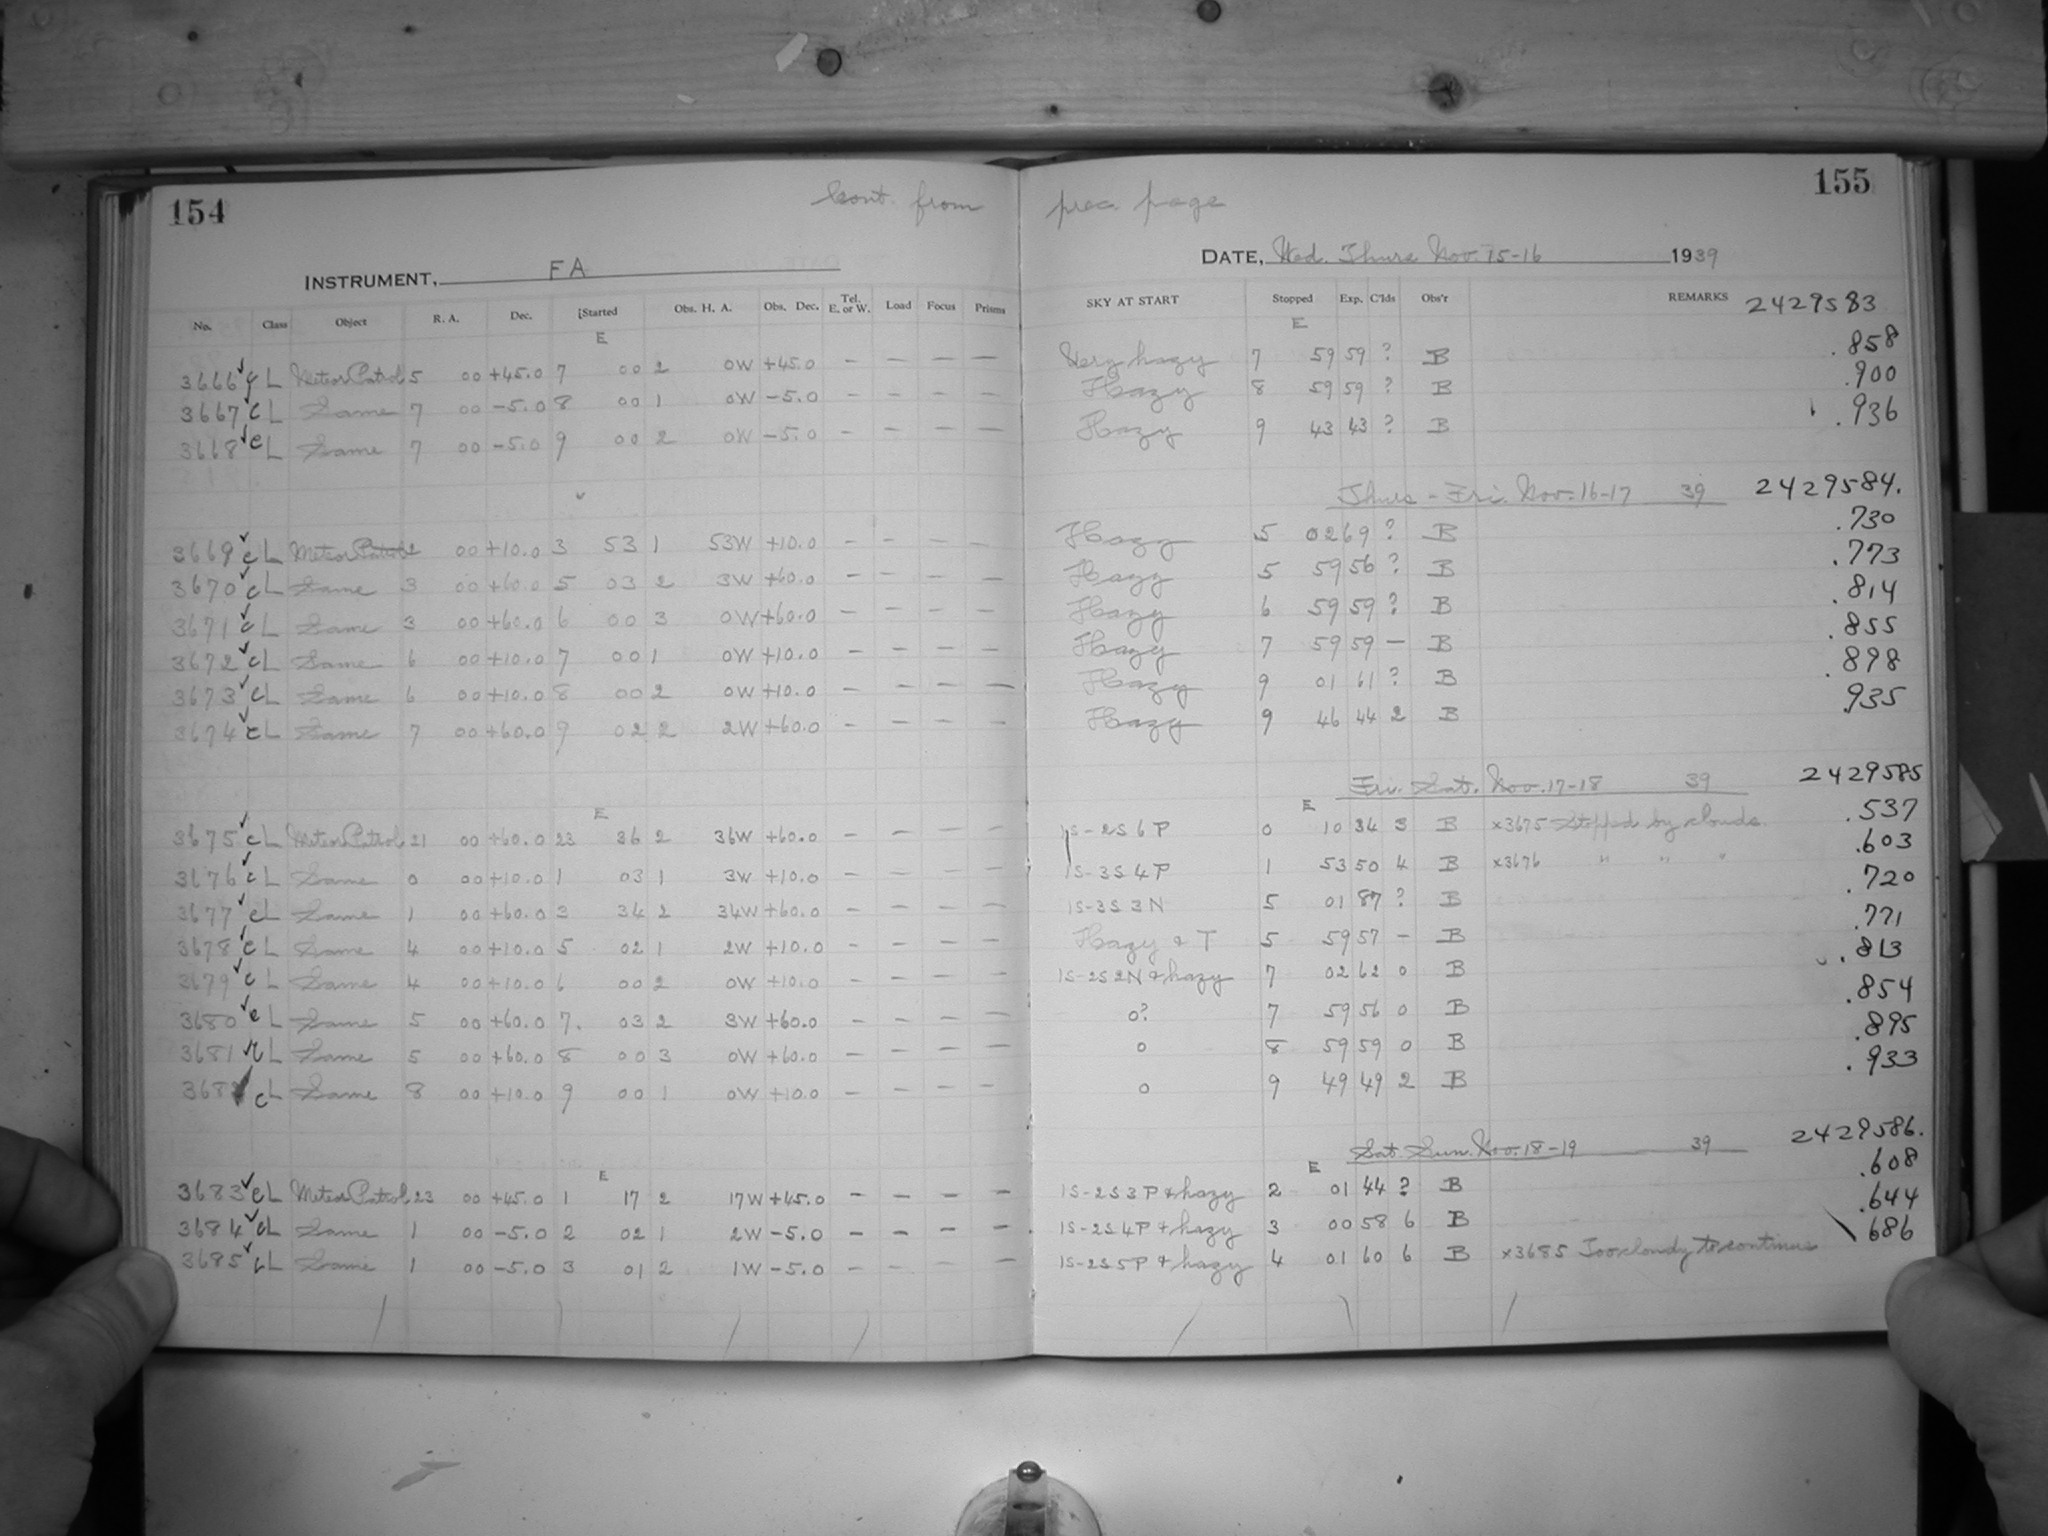 154
Cont. from prec. page
155
INSTRUMENT, FA
DATE, Wed. Thurs Nov. 15-16 1939
No. Class Object R. A. Dec. Started Obs. H. A. Obs. Dec. Tel. E. or W. Load Focus Prisms SKY AT START Stopped Exp. C'lds Obs'r REMARKS 2429583
E E
3666 ✓ c L Meteor Patrol 5 00 +45.0 7 00 2 0W +45.0 — — — — Very hazy 7 59 59 ? B .858
3667 ✓ c L Same 7 00 -5.0 8 00 1 0W -5.0 — — — — Hazy 8 59 59 ? B .900
3668 ✓ c L Same 7 00 -5.0 9 00 2 0W -5.0 — — — — Hazy 9 43 43 ? B .936
Thurs - Fri. Nov. 16-17 39 2429584.
3669 ✓ c L Meteor Patrol 2 00 +10.0 3 53 1 53W +10.0 — — — — Hazy 5 02 69 ? B .730
3670 ✓ c L Same 3 00 +60.0 5 03 2 3W +60.0 — — — — Hazy 5 59 56 ? B .773
3671 ✓ c L Same 3 00 +60.0 6 00 3 0W +60.0 — — — — Hazy 6 59 59 ? B .814
3672 ✓ c L Same 6 00 +10.0 7 00 1 0W +10.0 — — — — Hazy 7 59 59 — B .855
3673 ✓ c L Same 6 00 +10.0 8 00 2 0W +10.0 — — — — Hazy 9 01 61 ? B .898
3674 ✓ c L Same 7 00 +60.0 9 02 2 2W +60.0 — — — — Hazy 9 46 44 2 B .935
Fri. Sat. Nov. 17-18 39 2429585
E E
3675 ✓ c L Meteor Patrol 21 00 +60.0 23 36 2 36W +60.0 — — — — 1S-2S 6P 0 10 34 3 B x3675 Stopped by clouds. .537
3676 ✓ c L Same 0 00 +10.0 1 03 1 3W +10.0 — — — — 1S-3S 4P 1 53 50 4 B x3676 " " " .603
3677 ✓ c L Same 1 00 +60.0 3 34 2 34W +60.0 — — — — 1S-3S 3N 5 01 87 ? B .720
3678 ✓ c L Same 4 00 +10.0 5 02 1 2W +10.0 — — — — Hazy & T 5 59 57 — B .771
3679 ✓ c L Same 4 00 +10.0 6 00 2 0W +10.0 — — — — 1S-2S 2N & hazy 7 02 62 0 B .813
3680 ✓ c L Same 5 00 +60.0 7. 03 2 3W +60.0 — — — — 0? 7 59 56 0 B .854
3681 ✓ L Same 5 00 +60.0 8 00 3 0W +60.0 — — — — 0 8 59 59 0 B .895
3682 c L Same 8 00 +10.0 9 00 1 0W +10.0 — — — — 0 9 49 49 2 B .933
Sat. Sun. Nov. 18-19 39 2429586.
E E
3683 ✓ c L Meteor Patrol 23 00 +45.0 1 17 2 17W +45.0 — — — — 1S-2S 3P & hazy 2 01 44 ? B .608
3684 ✓ c L Same 1 00 -5.0 2 02 1 2W -5.0 — — — — 1S-2S 4P & hazy 3 00 58 6 B .644
3685 ✓ c L Same 1 00 -5.0 3 01 2 1W -5.0 — — — — 1S-2S 5P & hazy 4 01 60 6 B x3685 Too cloudy to continue 686